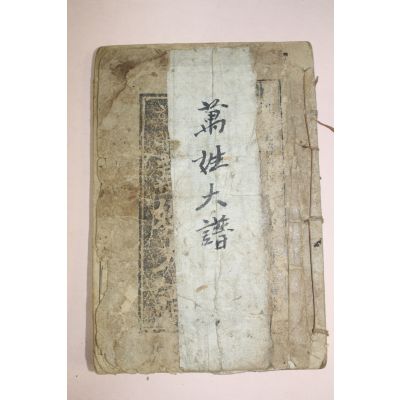 萬姓大譜